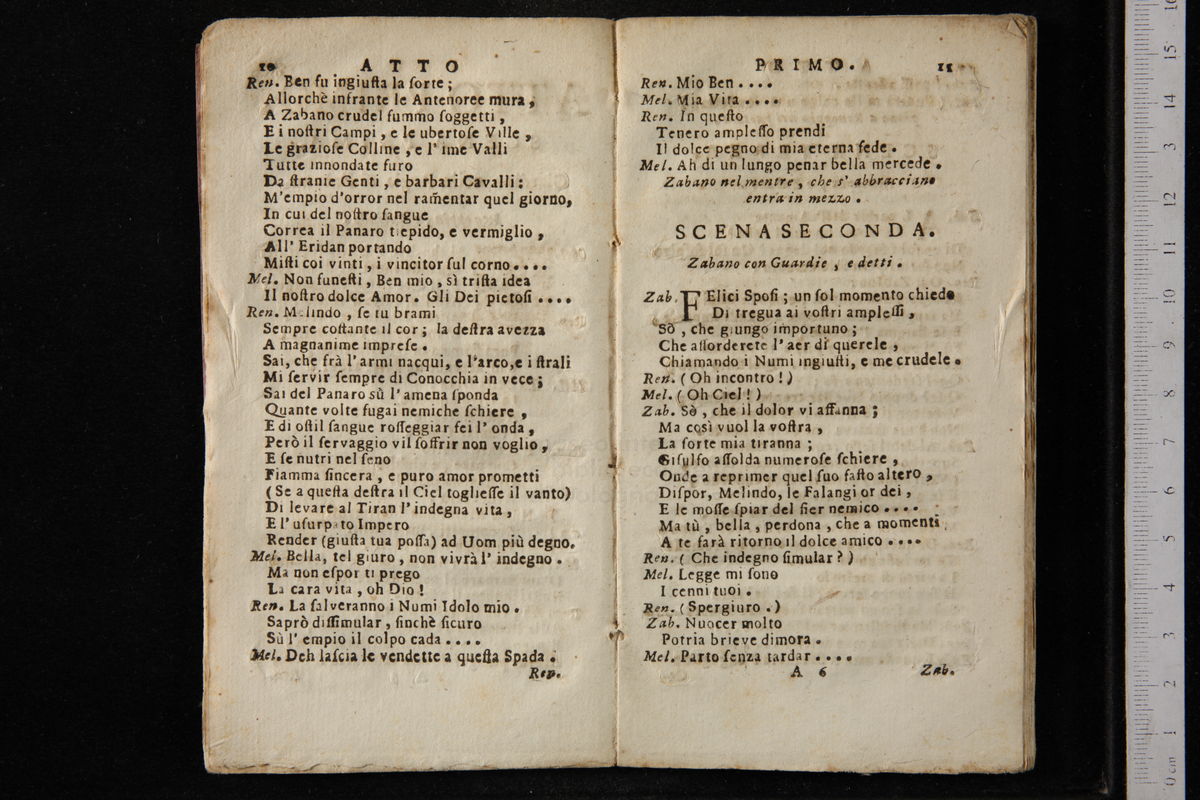 10 ATTO
Ren. Ben fu ingiuſta la ſorte;
Allorchè infrante le Antenoree mura,
A Zabano crudel fummo ſoggetti,
E i noſtri Campi, e le ubertoſe Ville,
Le grazioſe Colline, e l' ime Valli
Tutte innondate furo
Da ſtranie Genti, e barbari Cavalli:
M'empio d'orror nel ram̃entar quel giorno,
In cui del noſtro ſangue
Correa il Panaro tiepido, e vermiglio,
All' Eridan portando
Miſti coi vinti, i vincitor ſul corno....
Mel. Non funeſti, Ben mio, sì triſta idea
Il noſtro dolce Amor. Gli Dei pietoſi ....
Ren. Melindo, ſe tu brami
Sempre coſtante il cor; la deſtra avezza
A magnanime impreſe.
Sai, che frà l'armi nacqui, e l'arco,e i ſtrali
Mi ſervir ſempre di Conocchia in vece;
Sai del Panaro sù l'amena ſponda
Quante volte fugai nemiche ſchiere,
E di oſtil ſangue roſſeggiar fei l'onda,
Però il ſervaggio vil ſoffrir non voglio,
E ſe nutri nel ſeno
Fiamma ſincera, e puro amor prometti
(Se a queſta deſtra il Ciel toglieſſe il vanto)
Di levare al Tiran l'indegna vita,
E l'uſurpato Impero
Render (giuſta tua poſſa) ad Uom più degno.
Mel. Bella, tel giuro, non vivrà l'indegno.
Ma non eſpor ti prego
La cara vita, oh Dio!
Ren. La ſalveranno i Numi Idolo mio.
Saprò diſſimular, finchè ſicuro
Sù l'empio il colpo cada ....
Mel. Deh laſcia le vendette a queſta Spada.
Ren.
PRIMO. 11
Ren. Mio Ben ....
Mel. Mia Vita ....
Ren. In queſto
Tenero ampleſſo prendi
Il dolce pegno di mia eterna fede.
Mel. Ah di un lungo penar bella mercede.
Zabano nel mentre, che s' abbracciano
entra in mezzo.
SCENA SECONDA.
Zabano con Guardie, e detti.
Zab. FElici Spoſi; un ſol momento chiedo
Di tregua ai voſtri ampleſſi,
Sò, che giungo importuno;
Che aſſorderete l'aer di querele,
Chiamando i Numi ingiuſti, e me crudele.
Ren. (Oh incontro!)
Mel. (Oh Ciel!)
Zab. Sò, che il dolor vi affanna;
Ma così vuol la voſtra,
La ſorte mia tiranna;
Giſulfo aſſolda numeroſe ſchiere,
Onde a reprimer quel ſuo faſto altero,
Diſpor, Melindo, le Falangi or dei,
E le moſſe ſpiar del fier nemico ....
Ma tù, bella, perdona, che a momenti
A te farà ritorno il dolce amico ....
Ren. (Che indegno ſimular?)
Mel. Legge mi ſono
I cenni tuoi.
Ren. (Spergiuro.)
Zab. Nuocer molto
Potria brieve dimora.
Mel. Parto ſenza tardar ....
A 6 Zab.